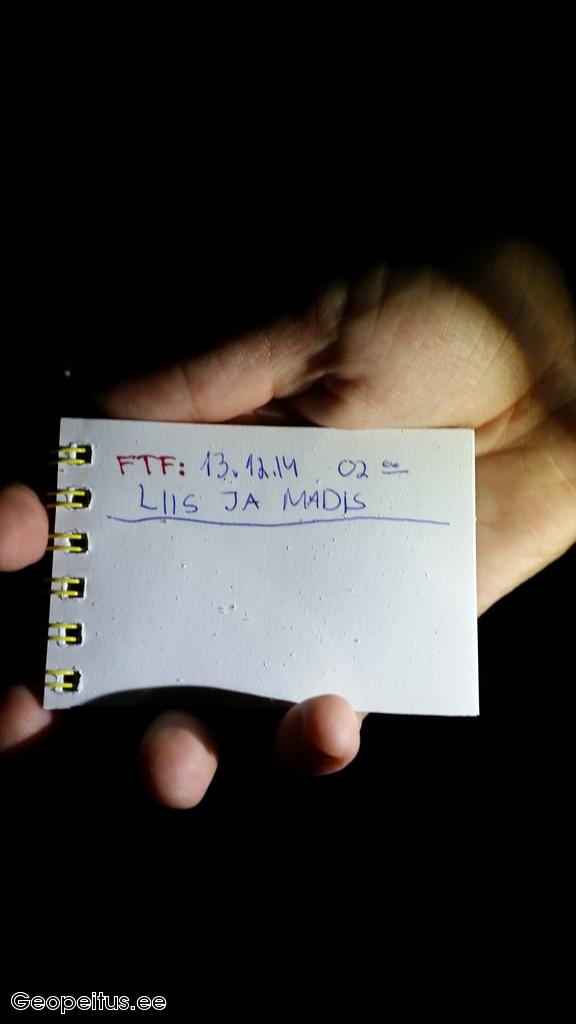 FTF: 13.12.14 02 00
LIIS JA MADIS
Geopeitus.ee